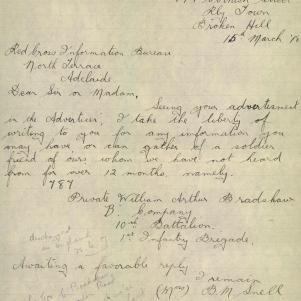 Rly Town
Broken Hill
15th March
Red Cross Information Bureau
North Terrace
Adelaide.
Dear Sir or Madam,
Seeing your advertesment
in the Advertiser, I take the liberty of
writing to you for any information you
may have, or can gather of a soldier
friend of ours whom we have not heard
from for over 12 months, namely.
787
Private William Arthur Bradshaw
B. Company
10th Battalion.
1st Infantry Brigade.
Awaiting a favorable reply
I remain
(Mrs) B. M. Snell